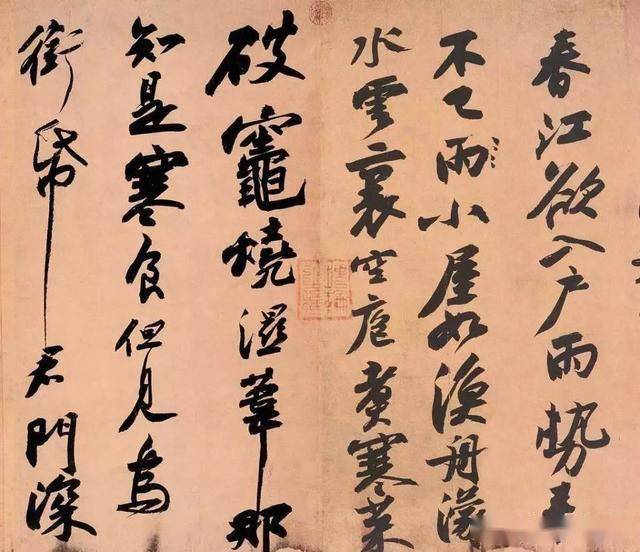 春江欲入戶雨勢来
不已雨小屋如漁舟濛
水雲裏空庖煑寒菜
破竈燒溼葦那
知是寒食但見烏
銜帋君門深